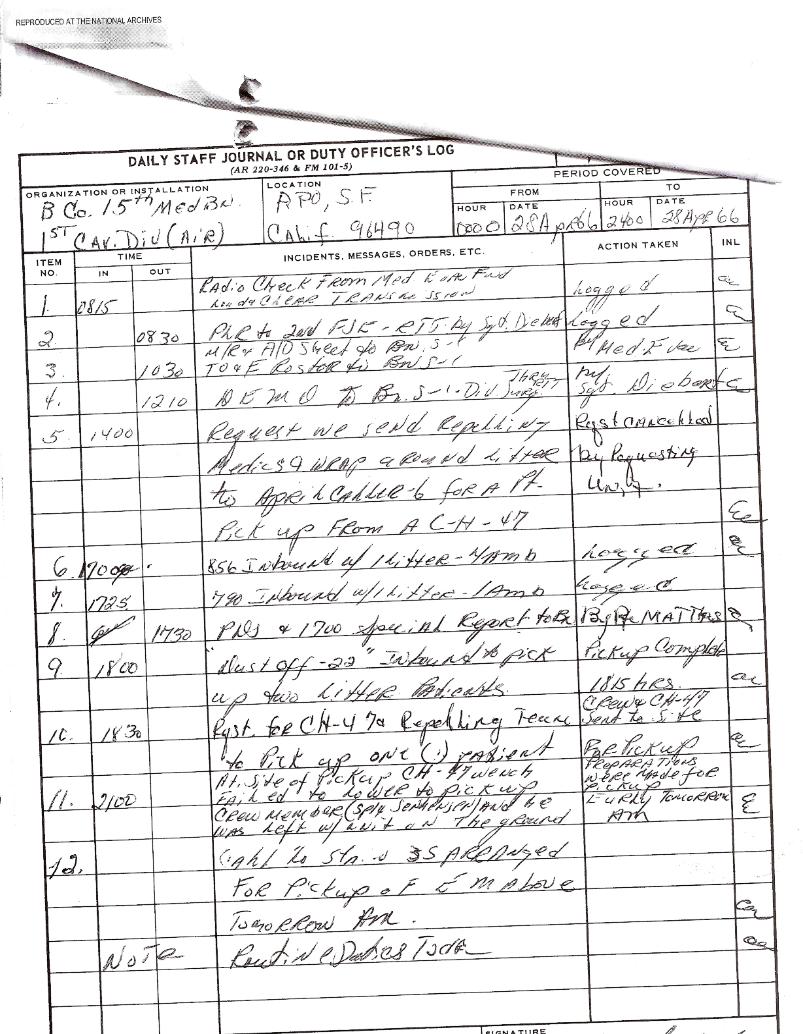 REPRODUCED AT THE NATIONAL ARCHIVES
DAILY STAFF JOURNAL OR DUTY OFFICER'S LOG
(AR 220-346 & FM 101-5)
PERIOD COVERED
ORGANIZATION OR INSTALLATION
LOCATION
FROM
TO
HOUR DATE HOUR DATE
B Co. 15th Med Bn.
APO, S.F.
1ST Cav. Div (Air)
Calif. 96490
0000 28 Apr 66 2400 28 Apr 66
ITEM NO.
TIME
IN OUT
INCIDENTS, MESSAGES, ORDERS, ETC.
ACTION TAKEN
INL
1. 0815 Radio Check From Med Evac Fwd Logged
2. 0830 to 2nd by Sgt. Logged
M/R & A/D Sheet to Bn. S-1 Med Evac
3. 1030 TO&E Roster to Bn S-1
4. 1210 DEMO To Bn. S-1. Div Surg. Thru Sgt Diebert
5. 1400 Request we send Repelling Rqst Cancelled
Medics & WRAP around Litter by Requesting
to April Caller-6 for A Pt. Unit.
Pick up From A C-H-47
6. 1700 856 Inbound w/ 1 Litter - 4 Amb Logged
7. 1725 790 Inbound w/ 1 Litter - 1 Amb Logged
8. 1730 & 1700 special Report to Bn By
9 1800 "Dust off -22" Inbound to pick Pickup Complete
up two Litter Patients. 1815 hrs.
10. 1830 Rqst. for CH-47 & Repelling Team Crew & CH-47 Sent to Site
to Pick up one (1) patient For Pickup
11. 2100 At Site of Pickup CH-47 wench PREPARATIONS
FAILED to Lower to pick up were made for pickup
Crew member (Sp/4 ) and he Early Tomorrow
was Left w/unit on The ground AM
12. ARRANGED
For Pickup of EM Above
Tomorrow Am.
NOTE Routine Duties Today
SIGNATURE